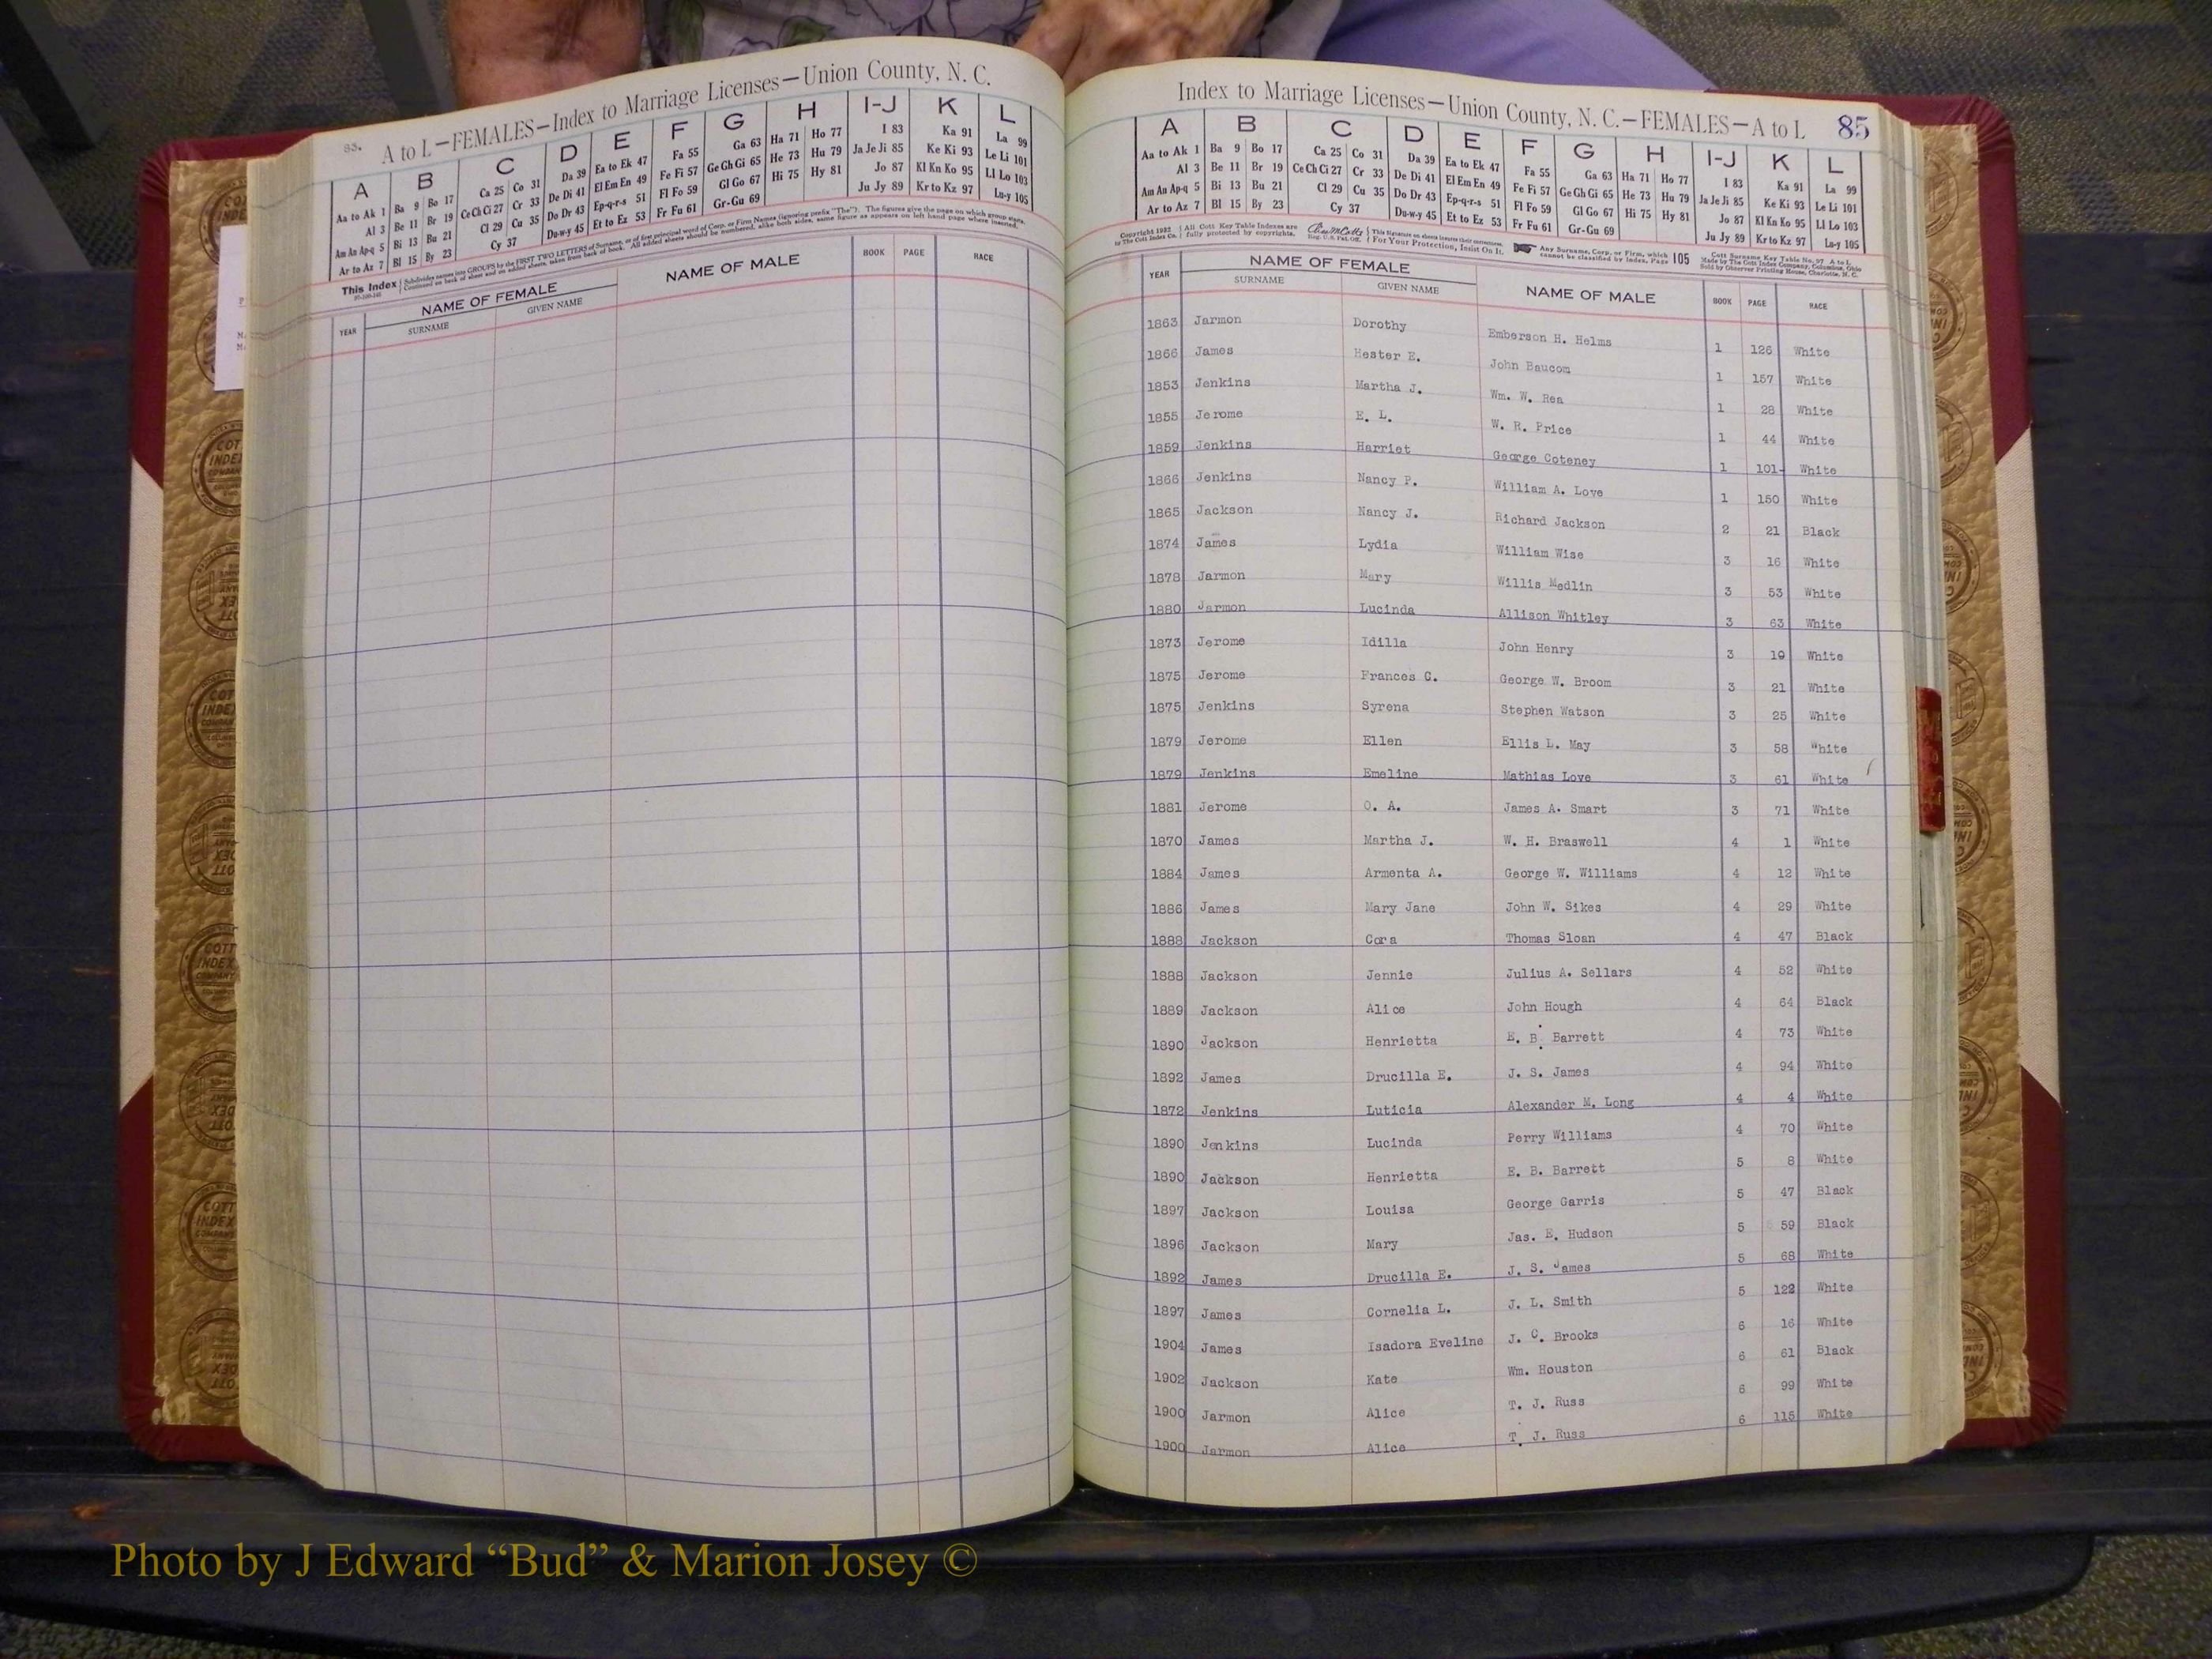 83.
A to L—FEMALES—Index to Marriage Licenses—Union County, N. C.
A B C D E F G H I-J K L
Aa to Ak 1 Ba 9 Bo 17 Ca 25 Co 31 Da 39 Ea to Ek 47 Fa 55 Ga 63 Ha 71 Ho 77 I 83 Ka 91 La 99
Al 3 Be 11 Br 19 Ce Ch Ci 27 Cr 33 De Di 41 El Em En 49 Fe Fi 57 Ge Gh Gi 65 He 73 Hu 79 Ja Je Ji 85 Ke Ki 93 Le Li 101
Am An Ap-q 5 Bi 13 Bu 21 Cl 29 Cu 35 Do Dr 43 Ep-q-r-s 51 Fl Fo 59 Gl Go 67 Hi 75 Hy 81 Jo 87 Kl Kn Ko 95 Ll Lo 103
Ar to Az 7 Bl 15 By 23 Cy 37 Du-w-y 45 Et to Ez 53 Fr Fu 61 Gr-Gu 69 Ju Jy 89 Kr to Kz 97 Lu-y 105
This Index Subdivides names into GROUPS by the FIRST TWO LETTERS of Surname, or of first principal word of Corp. or Firm Names (ignoring prefix "The"). The figures give the page on which group starts.
Continued on back of sheet and on added sheets, taken from back of book. All added sheets should be numbered, alike both sides, same figure as appears on left hand page where inserted.
YEAR NAME OF FEMALE SURNAME GIVEN NAME NAME OF MALE BOOK PAGE RACE
Index to Marriage Licenses—Union County, N. C.—FEMALES—A to L 85
A B C D E F G H I-J K L
Aa to Ak 1 Ba 9 Bo 17 Ca 25 Co 31 Da 39 Ea to Ek 47 Fa 55 Ga 63 Ha 71 Ho 77 I 83 Ka 91 La 99
Al 3 Be 11 Br 19 Ce Ch Ci 27 Cr 33 De Di 41 El Em En 49 Fe Fi 57 Ge Gh Gi 65 He 73 Hu 79 Ja Je Ji 85 Ke Ki 93 Le Li 101
Am An Ap-q 5 Bi 13 Bu 21 Cl 29 Cu 35 Do Dr 43 Ep-q-r-s 51 Fl Fo 59 Gl Go 67 Hi 75 Hy 81 Jo 87 Kl Kn Ko 95 Ll Lo 103
Ar to Az 7 Bl 15 By 23 Cy 37 Du-w-y 45 Et to Ez 53 Fr Fu 61 Gr-Gu 69 Ju Jy 89 Kr to Kz 97 Lu-y 105
Copyright 1932 by The Cott Index Co. All Cott Key Table Indexes are fully protected by copyrights. Reg. U.S. Pat. Off. For Your Protection, Insist On It. Any Surname, Corp. or Firm, which cannot be classified by Index, Page 105
Cott Surname Key Table No. 97 A to L
Made by The Cott Index Company, Columbus, Ohio
Sold by Observer Printing House, Charlotte, N. C.
YEAR NAME OF FEMALE SURNAME GIVEN NAME NAME OF MALE BOOK PAGE RACE
1863 Jarmon Dorothy Emberson H. Helms 1 126 White
1866 James Hester E. John Baucom 1 157 White
1853 Jenkins Martha J. Wm. W. Rea 1 28 White
1855 Jerome E. L. W. R. Price 1 44 White
1859 Jenkins Harriet George Coteney 1 101 White
1866 Jenkins Nancy P. William A. Love 1 150 White
1865 Jackson Nancy J. Richard Jackson 2 21 Black
1874 James Lydia William Wise 3 16 White
1878 Jarmon Mary Willis Medlin 3 53 White
1880 Jarmon Lucinda Allison Whitley 3 63 White
1873 Jerome Idilla John Henry 3 19 White
1875 Jerome Frances C. George W. Broom 3 21 White
1875 Jenkins Syrena Stephen Watson 3 25 White
1879 Jerome Ellen Ellis L. May 3 58 White
1879 Jenkins Emeline Mathias Love 3 61 White
1881 Jerome O. A. James A. Smart 3 71 White
1870 James Martha J. W. H. Braswell 4 1 White
1884 James Armenta A. George W. Williams 4 12 White
1886 James Mary Jane John W. Sikes 4 29 White
1888 Jackson Cora Thomas Sloan 4 47 Black
1888 Jackson Jennie Julius A. Sellars 4 52 White
1889 Jackson Alice John Hough 4 64 Black
1890 Jackson Henrietta E. B. Barrett 4 73 White
1892 James Drucilla E. J. S. James 4 94 White
1872 Jenkins Luticia Alexander M. Long 4 4 White
1890 Jenkins Lucinda Perry Williams 4 70 White
1890 Jackson Henrietta E. B. Barrett 5 8 White
1897 Jackson Louisa George Garris 5 47 Black
1896 Jackson Mary Jas. E. Hudson 5 59 Black
1892 James Drucilla E. J. S. James 5 68 White
1897 James Cornelia L. J. L. Smith 5 122 White
1904 James Isadora Eveline J. C. Brooks 6 16 White
1902 Jackson Kate Wm. Houston 6 61 Black
1900 Jarmon Alice T. J. Russ 6 99 White
1900 Jarmon Alice T. J. Russ 6 115 White
Photo by J Edward “Bud” & Marion Josey ©